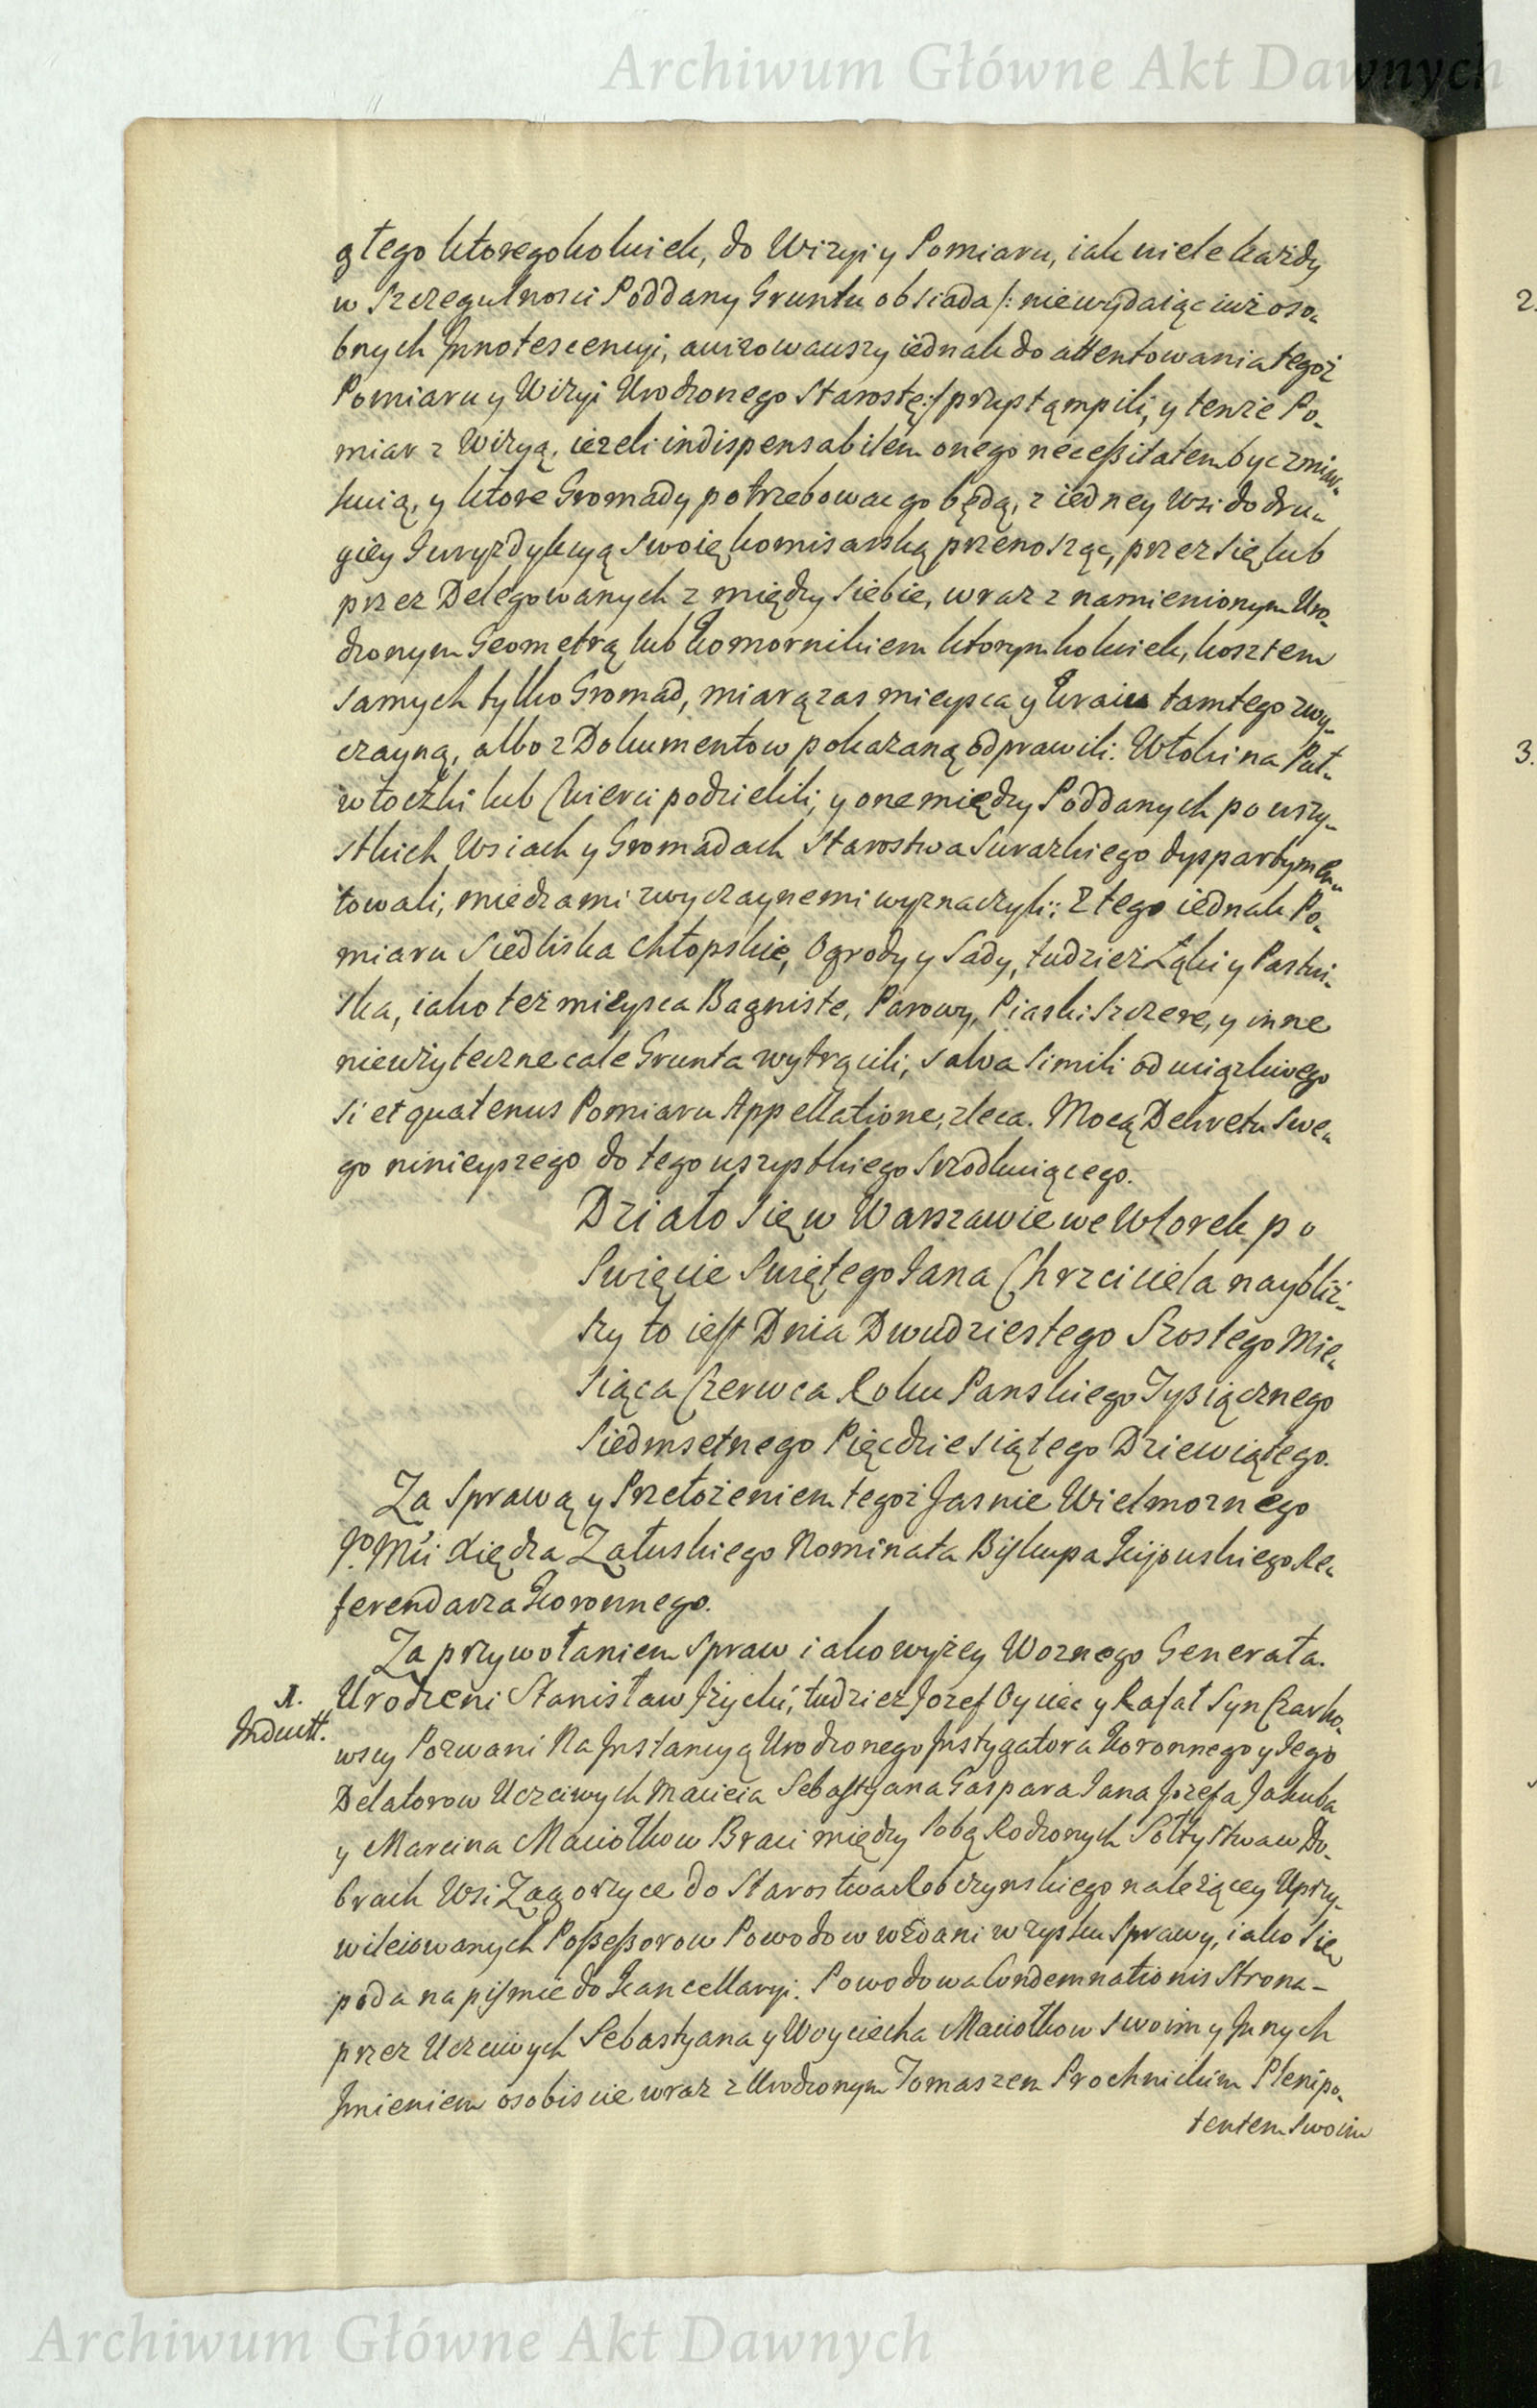 Archiwum Główne Akt Dawnych
głego ktoregokolwiek, do Wizyi y Pomiaru, iak wiele każdy
w Szczegulnosci Poddany Gruntu obsiada /: niewydaiąc iuż oso„
bnych Jnnotescencyi, awizowawszy iednak do attentowania tegoż
Pomiaru y Wizyi Urodzonego Starostę :/ przystąmpili, y tenże Po„
miar z Wizyą, ieżeli indispensabilem onego necessitatem byc zmiar„
kuią, y ktore Gromady potrzebowac go będą, z iedney Wsi do dru„
giey Juryzdykcyą Swoię komisarską przenosząc, przez się lub
przez Delegowanych z między siebie, wraz z namienionym Uro„
dzonym Geometrą lub Komornikiem ktorymkolwiek, kosztem
samych tylko Gromad, miarą zas mieysca y Kraiu tamtego zwy„
czayną, albo z Dokumentow pokazaną odprawili: Włoki na Puł„
włoczki lub Cwierci podzielili, y one między Poddanych po wszy„
stkich Wsiach y Gromadach Starostwa Surazkiego dyspartymen„
towali, miedzami zwyczaynemi wyznaczyli; z tego iednak Po„
miaru Siedliska chłopskie, Ogrody y Sady, tudzież Łąki y Pastwi„
ska, iako też mieysca Bagniste, Parowy, Piaski Szczere, y inne
nieużyteczne cale Grunta wytrącili, salva simili od uciązliwego
si et quatenus Pomiaru Appellatione, zleca. Mocą Dekretu Swe„
go ninieyszego do tego wszystkiego Srzodkuiącego.
Działo się w Warszawie we Wtorek po
Swięcie Swiętego Jana Chrzciciela naybliż„
szy to iest Dnia Dwudziestego Szostego Mie„
siąca Czerwca Roku Panskiego Tysiącznego
Siedmsetnego Pięcdziesiątego Dziewiątego.
Za Sprawą y Przełożeniem tegoż Jasnie Wielmoznego
Jo Mći Xiędza Załuskiego Nominata Biskupa Kijowskiego Re„
ferendarza Koronnego.
Za przywołaniem spraw iako wyżey Woznego Generała.
1. Jnduitt.
Urodzeni Stanisław Jżycki, tudzież Jozef Oyciec y Rafał Syn Czarko„
wscy Pozwani Na Jnstancyą Urodzonego Jnstygatora Koronnego y Jego
Delatorow Uczciwych Macieia Sebastyana Gaspara Jana Jozefa Jakuba
y Marcina Maciołkow Braci między Sobą Rodzonych Sołtystwa w Do„
brach Wsi Zagorzyce do Starostwa Robczynskiego należącey Uprzy„
wileiowanych Possessorow Powodow wzdani w zysku Sprawy, iako się
poda na pismie do Kancellaryi. Powodowa Condemnationis Strona
przez Uczciwych Sebastyana y Woyciecha Maciołkow Swoim y Jnnych
Jmieniem osobiscie wraz z Urodzonym Tomaszem Prochnickim Plenipo„
tentem Swoim
2.
3.
Archiwum Główne Akt Dawnych